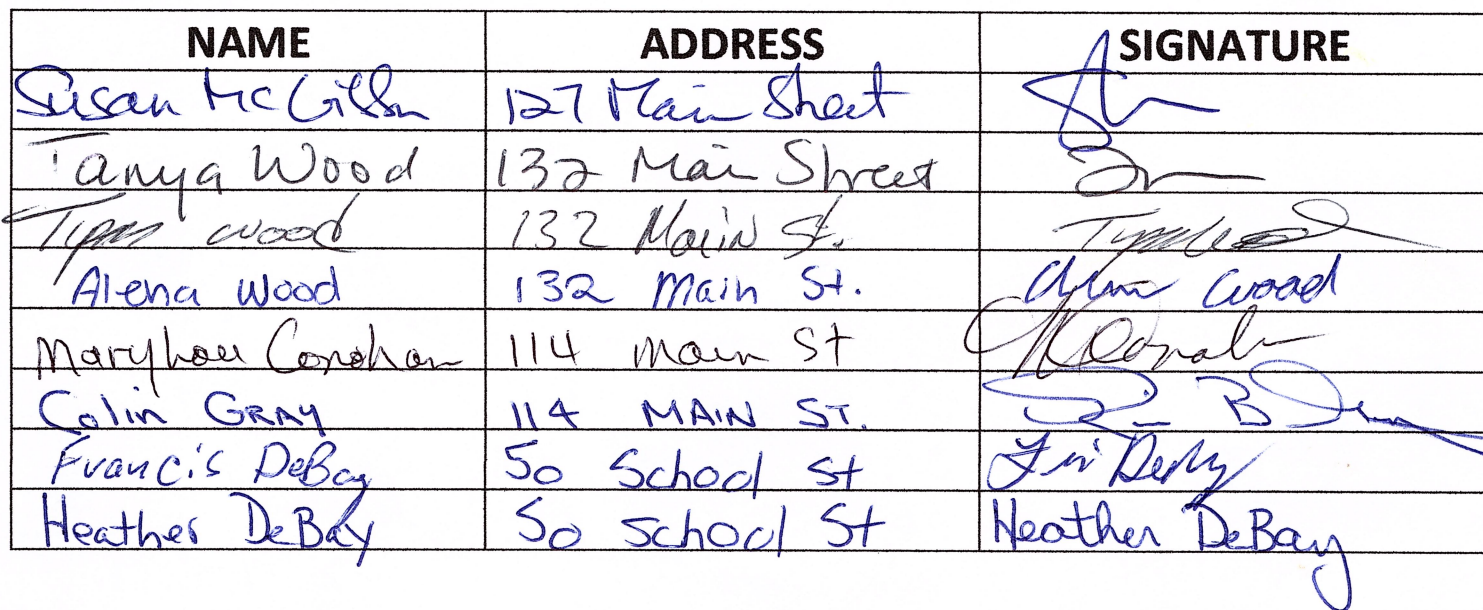 NAME ADDRESS SIGNATURE
Susan 127 Main Street
Tanya Wood 132 Main Street
wood 132 Main St.
Alena Wood 132 Main St. Wood
Marylou Conohan 114 Main St
Colin GRAY 114 MAIN ST.
Francis DeBay 50 School St
Heather DeBay 50 School St Heather DeBay